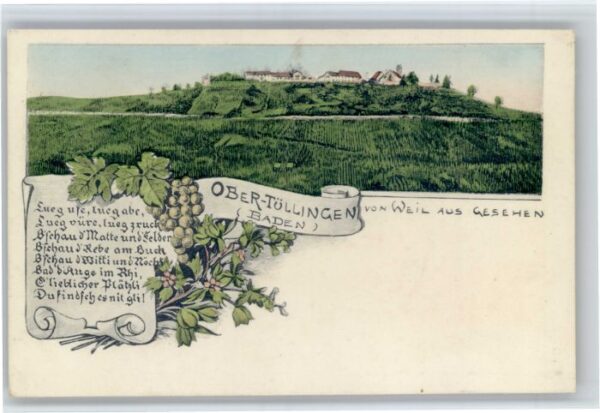 OBER-TÖLLINGEN
(BADEN)
VON WEIL AUS GESEHEN
Lueg ufe, lueg abe,
Lueg vüre, lueg zruck
Bschau d'Matte und Felder
Bschau d'Rebe am Buck
Bschau d'Witti und Nöchi
Bad d'Auge im Rhi,
E lieblicher Plätzli
Du findsch es nit gli!